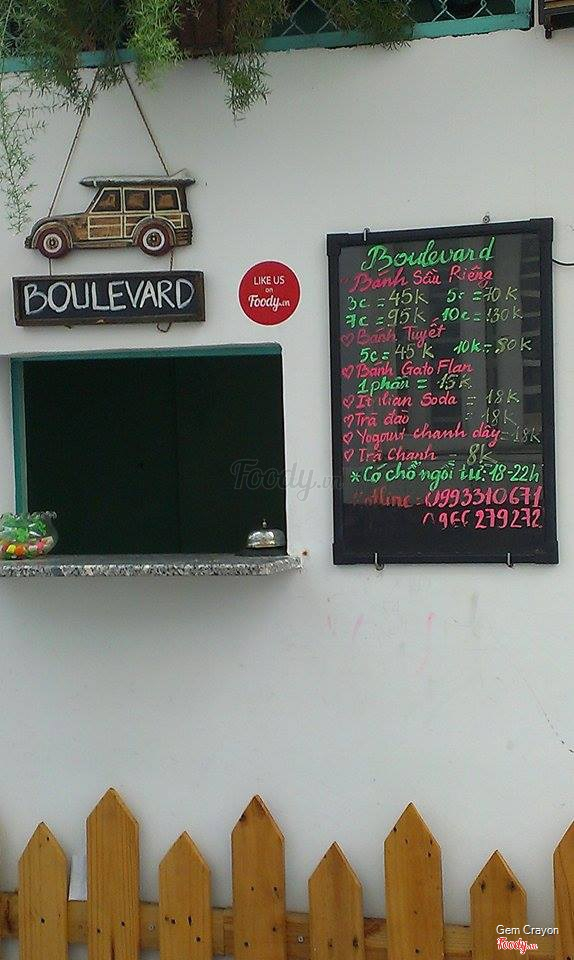 BOULEVARD
LIKE US
on
Foody.vn
Boulevard
Bánh Sầu Riêng
3c = 45k 5c = 70k
7c = 95k 10c = 130k
♡ Bánh Tuyết
5c = 45k 10k = 80k
♡ Bánh Gato Flan
1 phần = 15k
♡ Itilian Soda = 18k
♡ Trà đào = 18k
♡ Yogourt chanh dây = 18k
♡ Trà Chanh = 8k
* Có chỗ ngồi từ: 18-22h
Hotline: 0993310671
0966 279272
Foody.vn
Gem Crayon
Foody.vn